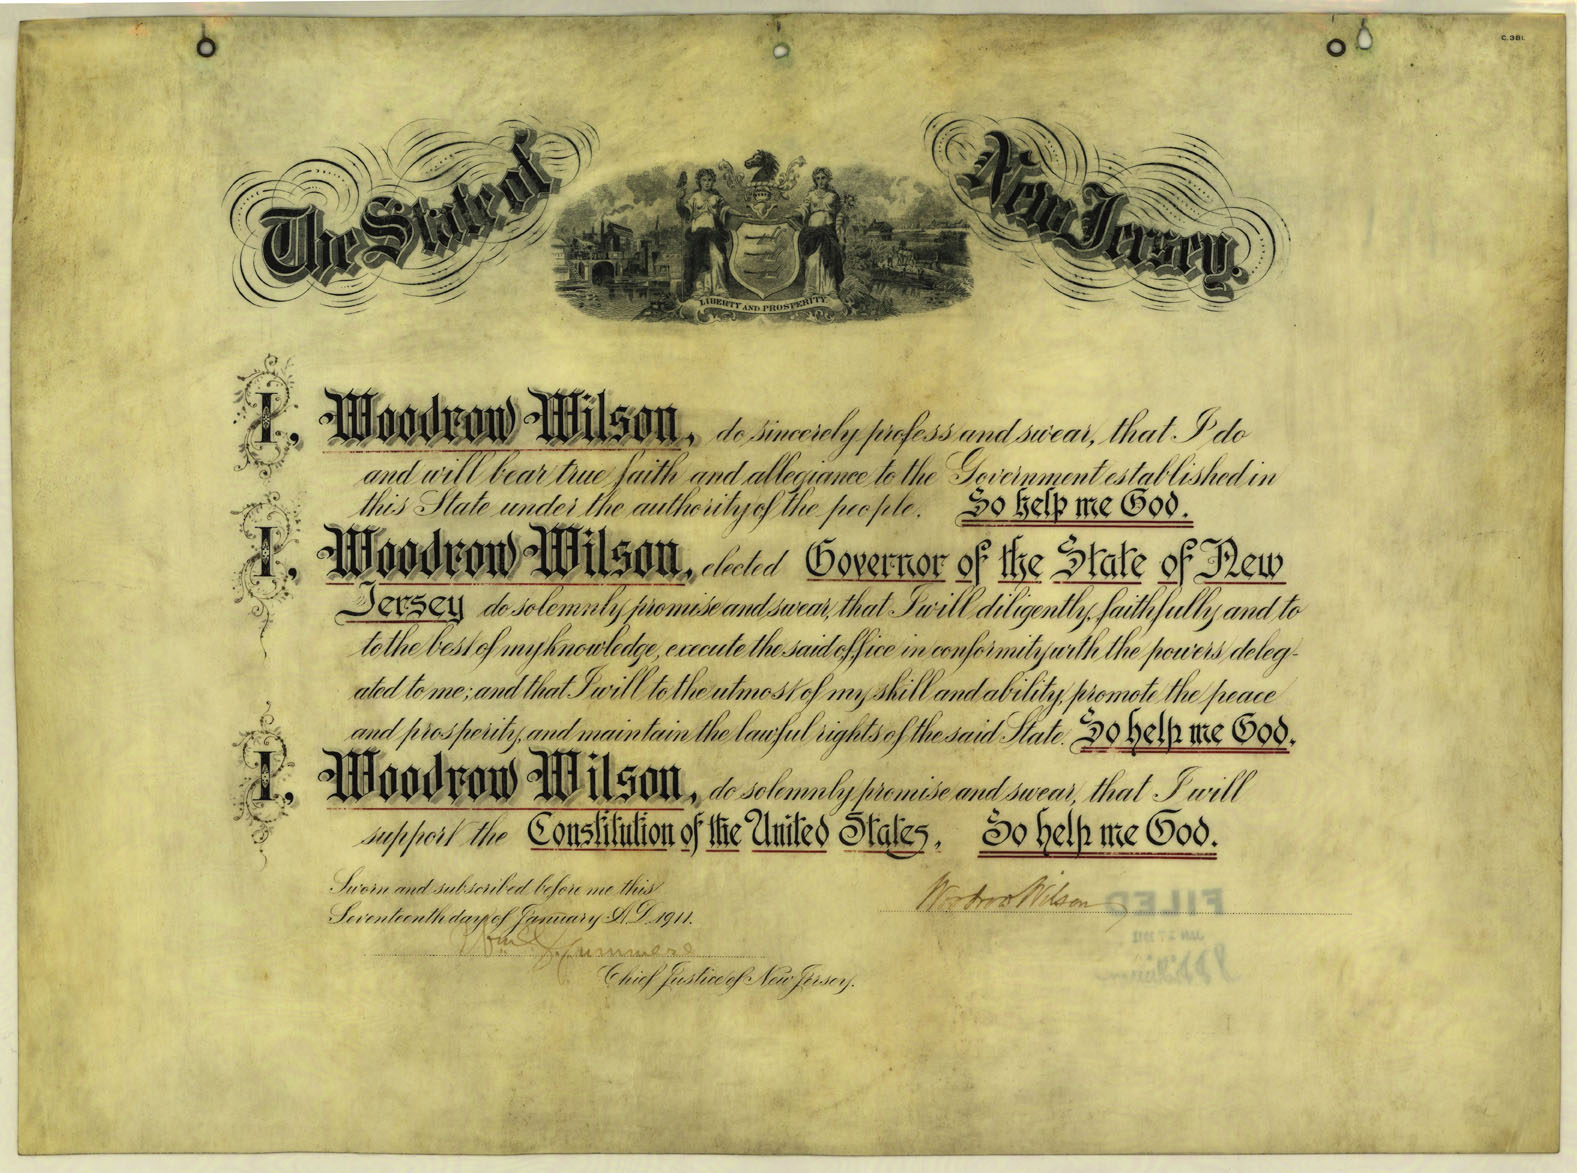 C.381.
The State of New Jersey.
LIBERTY AND PROSPERITY
I, Woodrow Wilson, do sincerely profess and swear, that I do
and will bear true faith and allegiance to the Government established in
this State under the authority of the people. So help me God.
I, Woodrow Wilson, elected Governor of the State of New
Jersey do solemnly promise and swear, that I will diligently, faithfully and to
to the best of my knowledge, execute the said office in conformity with the powers deleg-
ated to me; and that I will to the utmost of my skill and ability, promote the peace
and prosperity, and maintain the lawful rights of the said State. So help me God.
I, Woodrow Wilson, do solemnly promise and swear, that I will
support the Constitution of the United States. So help me God.
Sworn and subscribed before me this
Seventeenth day of January A.D. 1911.
Woodrow Wilson
FILED
JAN 17 1911
Wm. S. Gummere
Chief Justice of New Jersey.